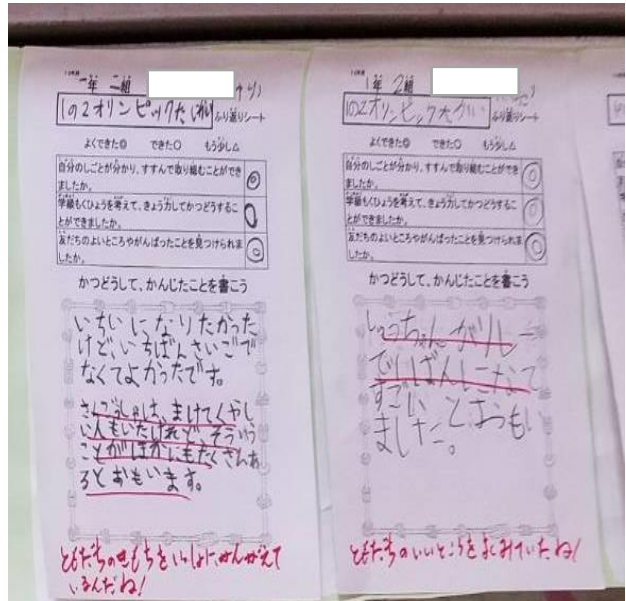 一年 二組
1の2オリンピックたいかい
ふり返りシート
よくできた◎ できた○ もう少し△
自分のしごとが分かり、すすんで取り組むことができ
ましたか。
◎
学級もくひょうを考えて、きょう力してかつどうするこ
とができましたか。
○
友だちのよいところやがんばったことを見つけられま
したか。
◎
かつどうして、かんじたことを書こう
いちいになりたかった
けど、いちばんさいごで
なくてよかったです。
まけてくやし
い人もいたけれど、そういう
ことがほかにもたくさんあ
るとおもいます。
ともだちのきもちをいっしょにかんがえて
いるんだね!
1年 2組
1の2オリンピック大
ふり返りシート
よくできた◎ できた○ もう少し△
自分のしごとが分かり、すすんで取り組むことができ
ましたか。
◎
学級もくひょうを考えて、きょう力してかつどうするこ
とができましたか。
◎
友だちのよいところやがんばったことを見つけられま
したか。
◎
かつどうして、かんじたことを書こう
ちゃんがりレー
で
すごいとおもい
ました。
ともだちのいいところをよくみていたね!